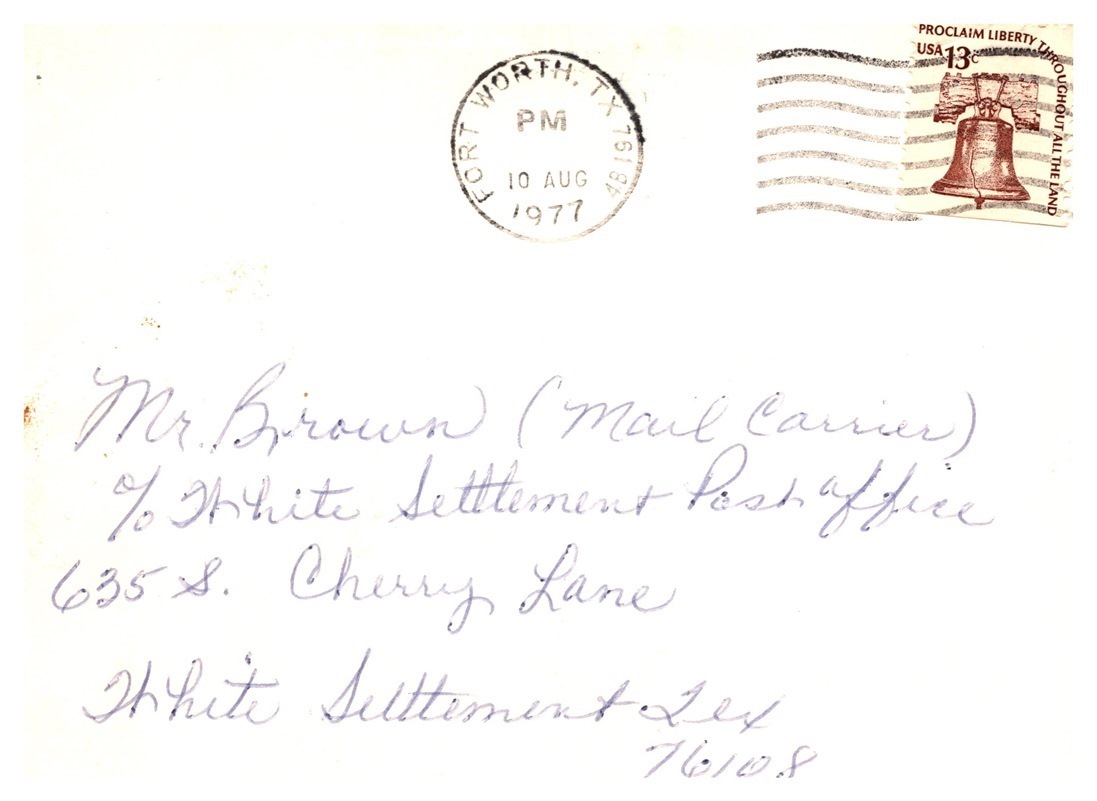 PROCLAIM LIBERTY THROUGHOUT ALL THE LAND
USA 13c
FORT WORTH, TX 761
PM
10 AUG
1977
Mr. Brown (Mail Carrier)
c/o White Settlement Post office
635 S. Cherry Lane
White Settlement Tex
76108